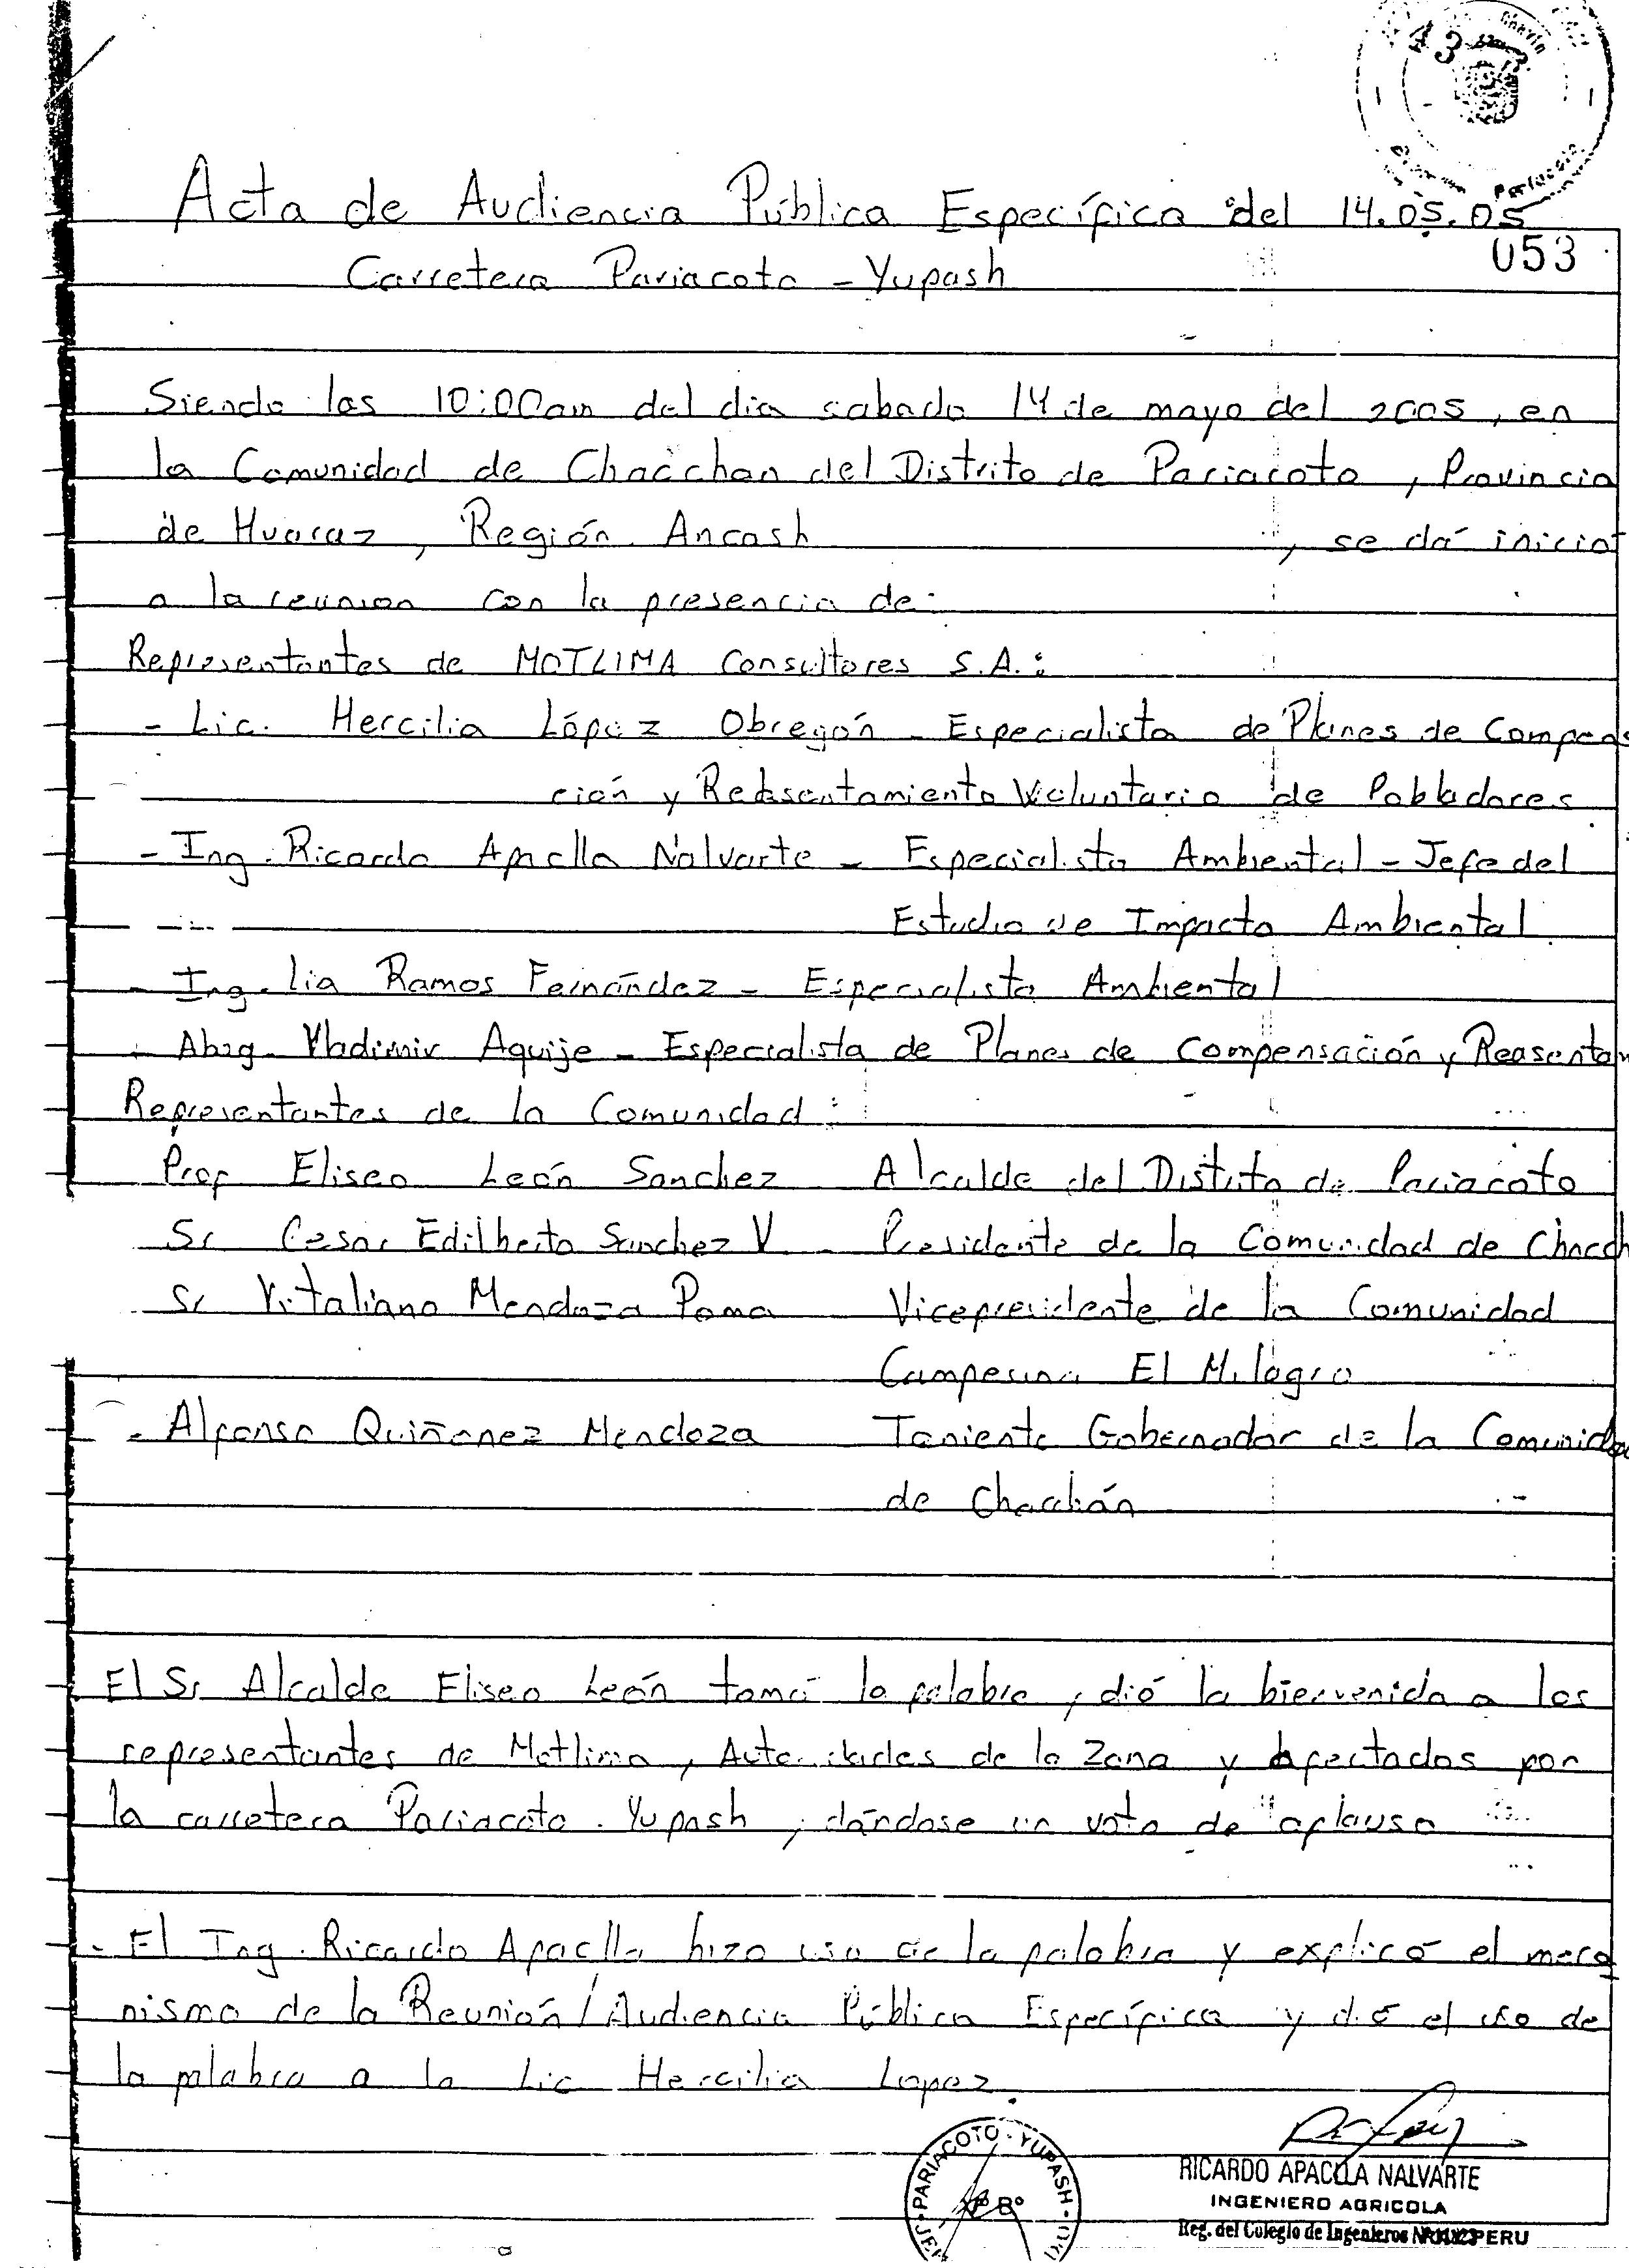 Acta de Audiencia Pública Específica del 14.05.05
053
Carretera Pariacoto - Yupash
Siendo las 10:00am del dia sabado 14 de mayo del 2005, en
la Comunidad de Chacchan del Distrito de Pariacoto, Provincia
de Huaraz, Región Ancash , se dá inicio
a la reunion con la presencia de:
Representantes de MOTLIMA Consultores S.A.:
- Lic. Hercilia López Obregón - Especialista de Planes de Compens
ción y Reasentamiento Voluntario de Pobladores
- Ing. Ricardo Apaclla Nalvarte - Especialista Ambiental - Jefe del
Estudio de Impacto Ambiental.
- Ing. Lia Ramos Fernández - Especialista Ambiental
- Abog. Vladimir Aquije - Especialista de Planes de Compensación y Reasentam
Representantes de la Comunidad:
Prof Eliseo León Sanchez - Alcalde del Distrito de Pariacoto
Sr Cesar Edilberto Sanchez V. - Presidente de la Comunidad de Chacch
Sr Vitaliano Mendoza Poma - Vicepresidente de la Comunidad
Campesina El Milagro
- Alfonso Quiñonez Mendoza - Teniente Gobernador de la Comunida
de Chacchán
El Sr Alcalde Eliseo León tomó la palabra, dió la bienvenida a los
representantes de Motlima, Autoridades de la Zona y afectados por
la carretera Pariacoto - Yupash, dándose un voto de aplauso
- El Ing. Ricardo Apaclla hizo uso de la palabra y explicó el meca
nismo de la Reunión / Audiencia Pública Específica y dió el uso de
la palabra a la Lic Hercilia Lopez.
PARIACOTO - YUPASH
V° B°
RICARDO APACLLA NALVARTE
INGENIERO AGRICOLA
Reg. del Colegio de Ingenieros PERU